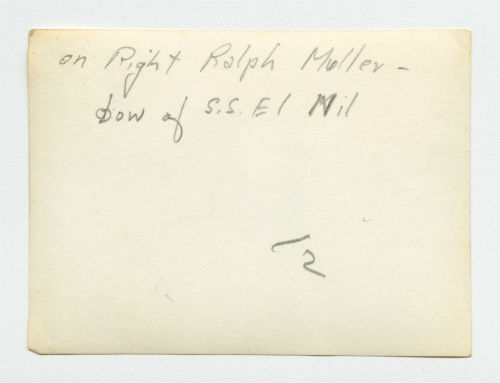 on Right Ralph Muller -
bow of S.S. El Nil
2